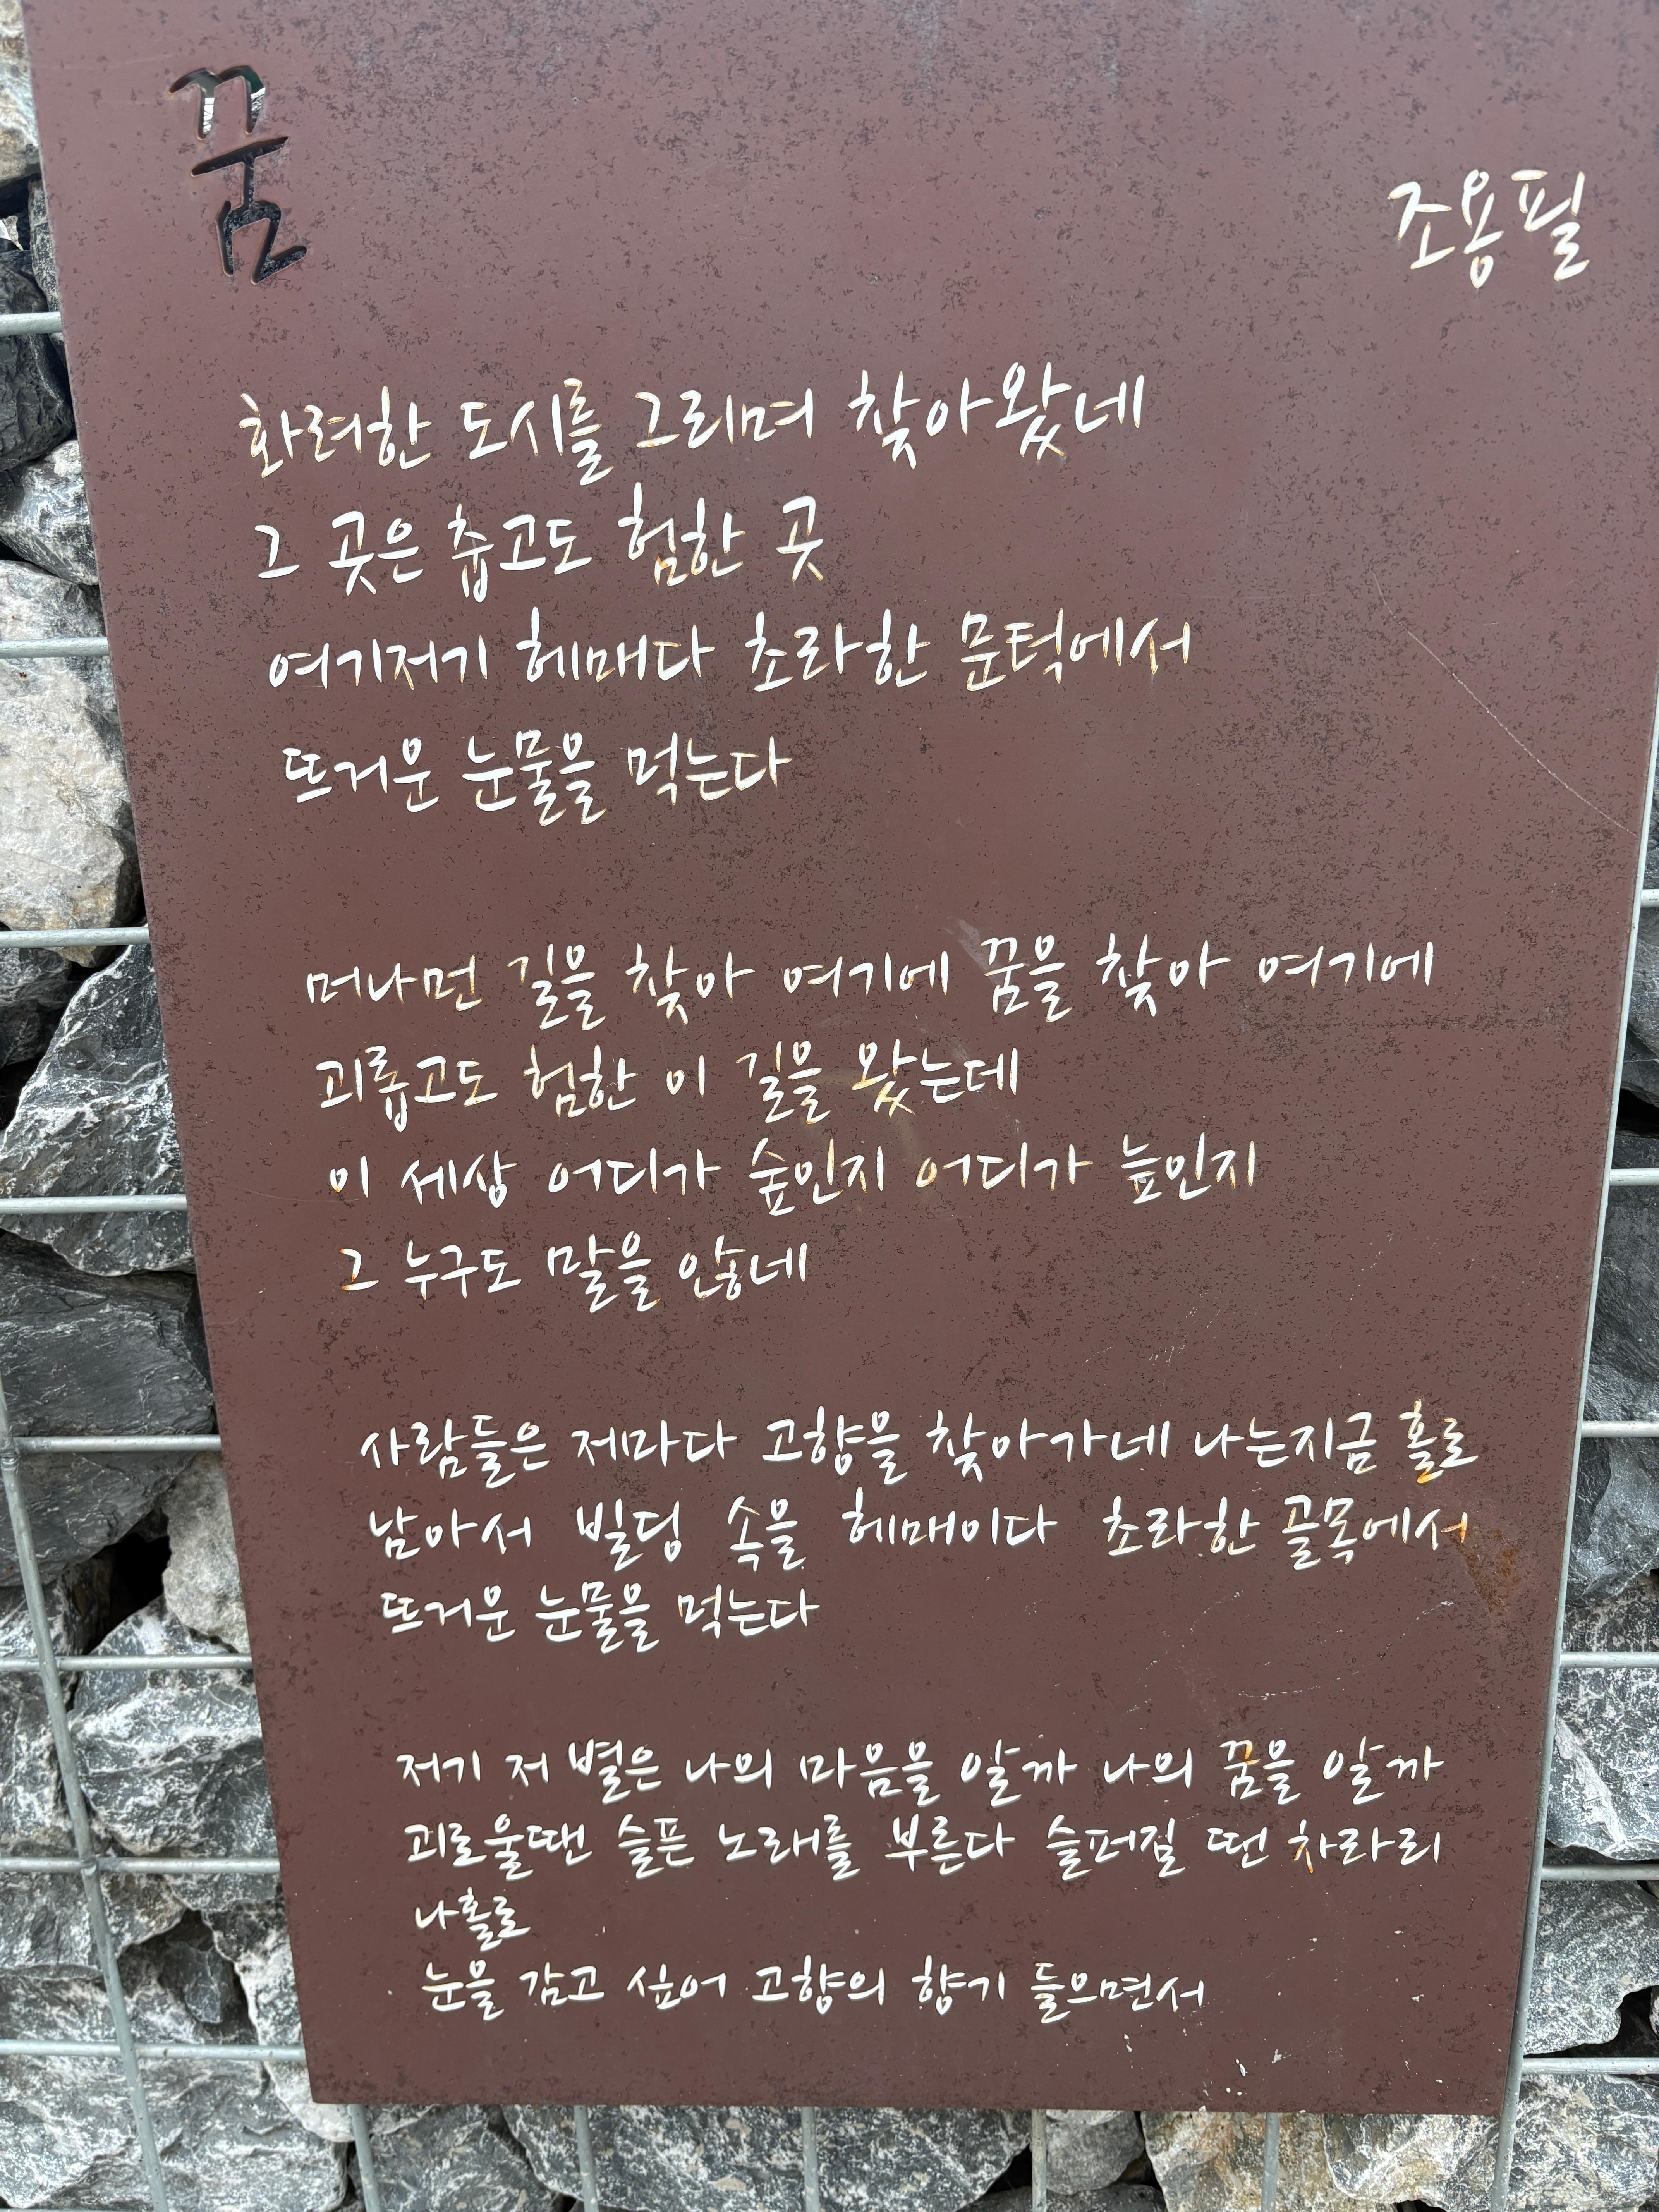 꿈
조용필
화려한 도시를 그리며 찾아왔네
그 곳은 춥고도 험한 곳
여기저기 헤매다 초라한 문턱에서
뜨거운 눈물을 먹는다
머나먼 길을 찾아 여기에 꿈을 찾아 여기에
괴롭고도 험한 이 길을 왔는데
이 세상 어디가 숲인지 어디가 늪인지
그 누구도 말을 않네
사람들은 제마다 고향을 찾아가네 나는지금 홀로
남아서 빌딩 속을 헤매이다 초라한 골목에서
뜨거운 눈물을 먹는다
저기 저 별은 나의 마음을 알까 나의 꿈을 알까
괴로울땐 슬픈 노래를 부른다 슬퍼질 땐 차라리
나홀로
눈을 감고 싶어 고향의 향기 들으면서